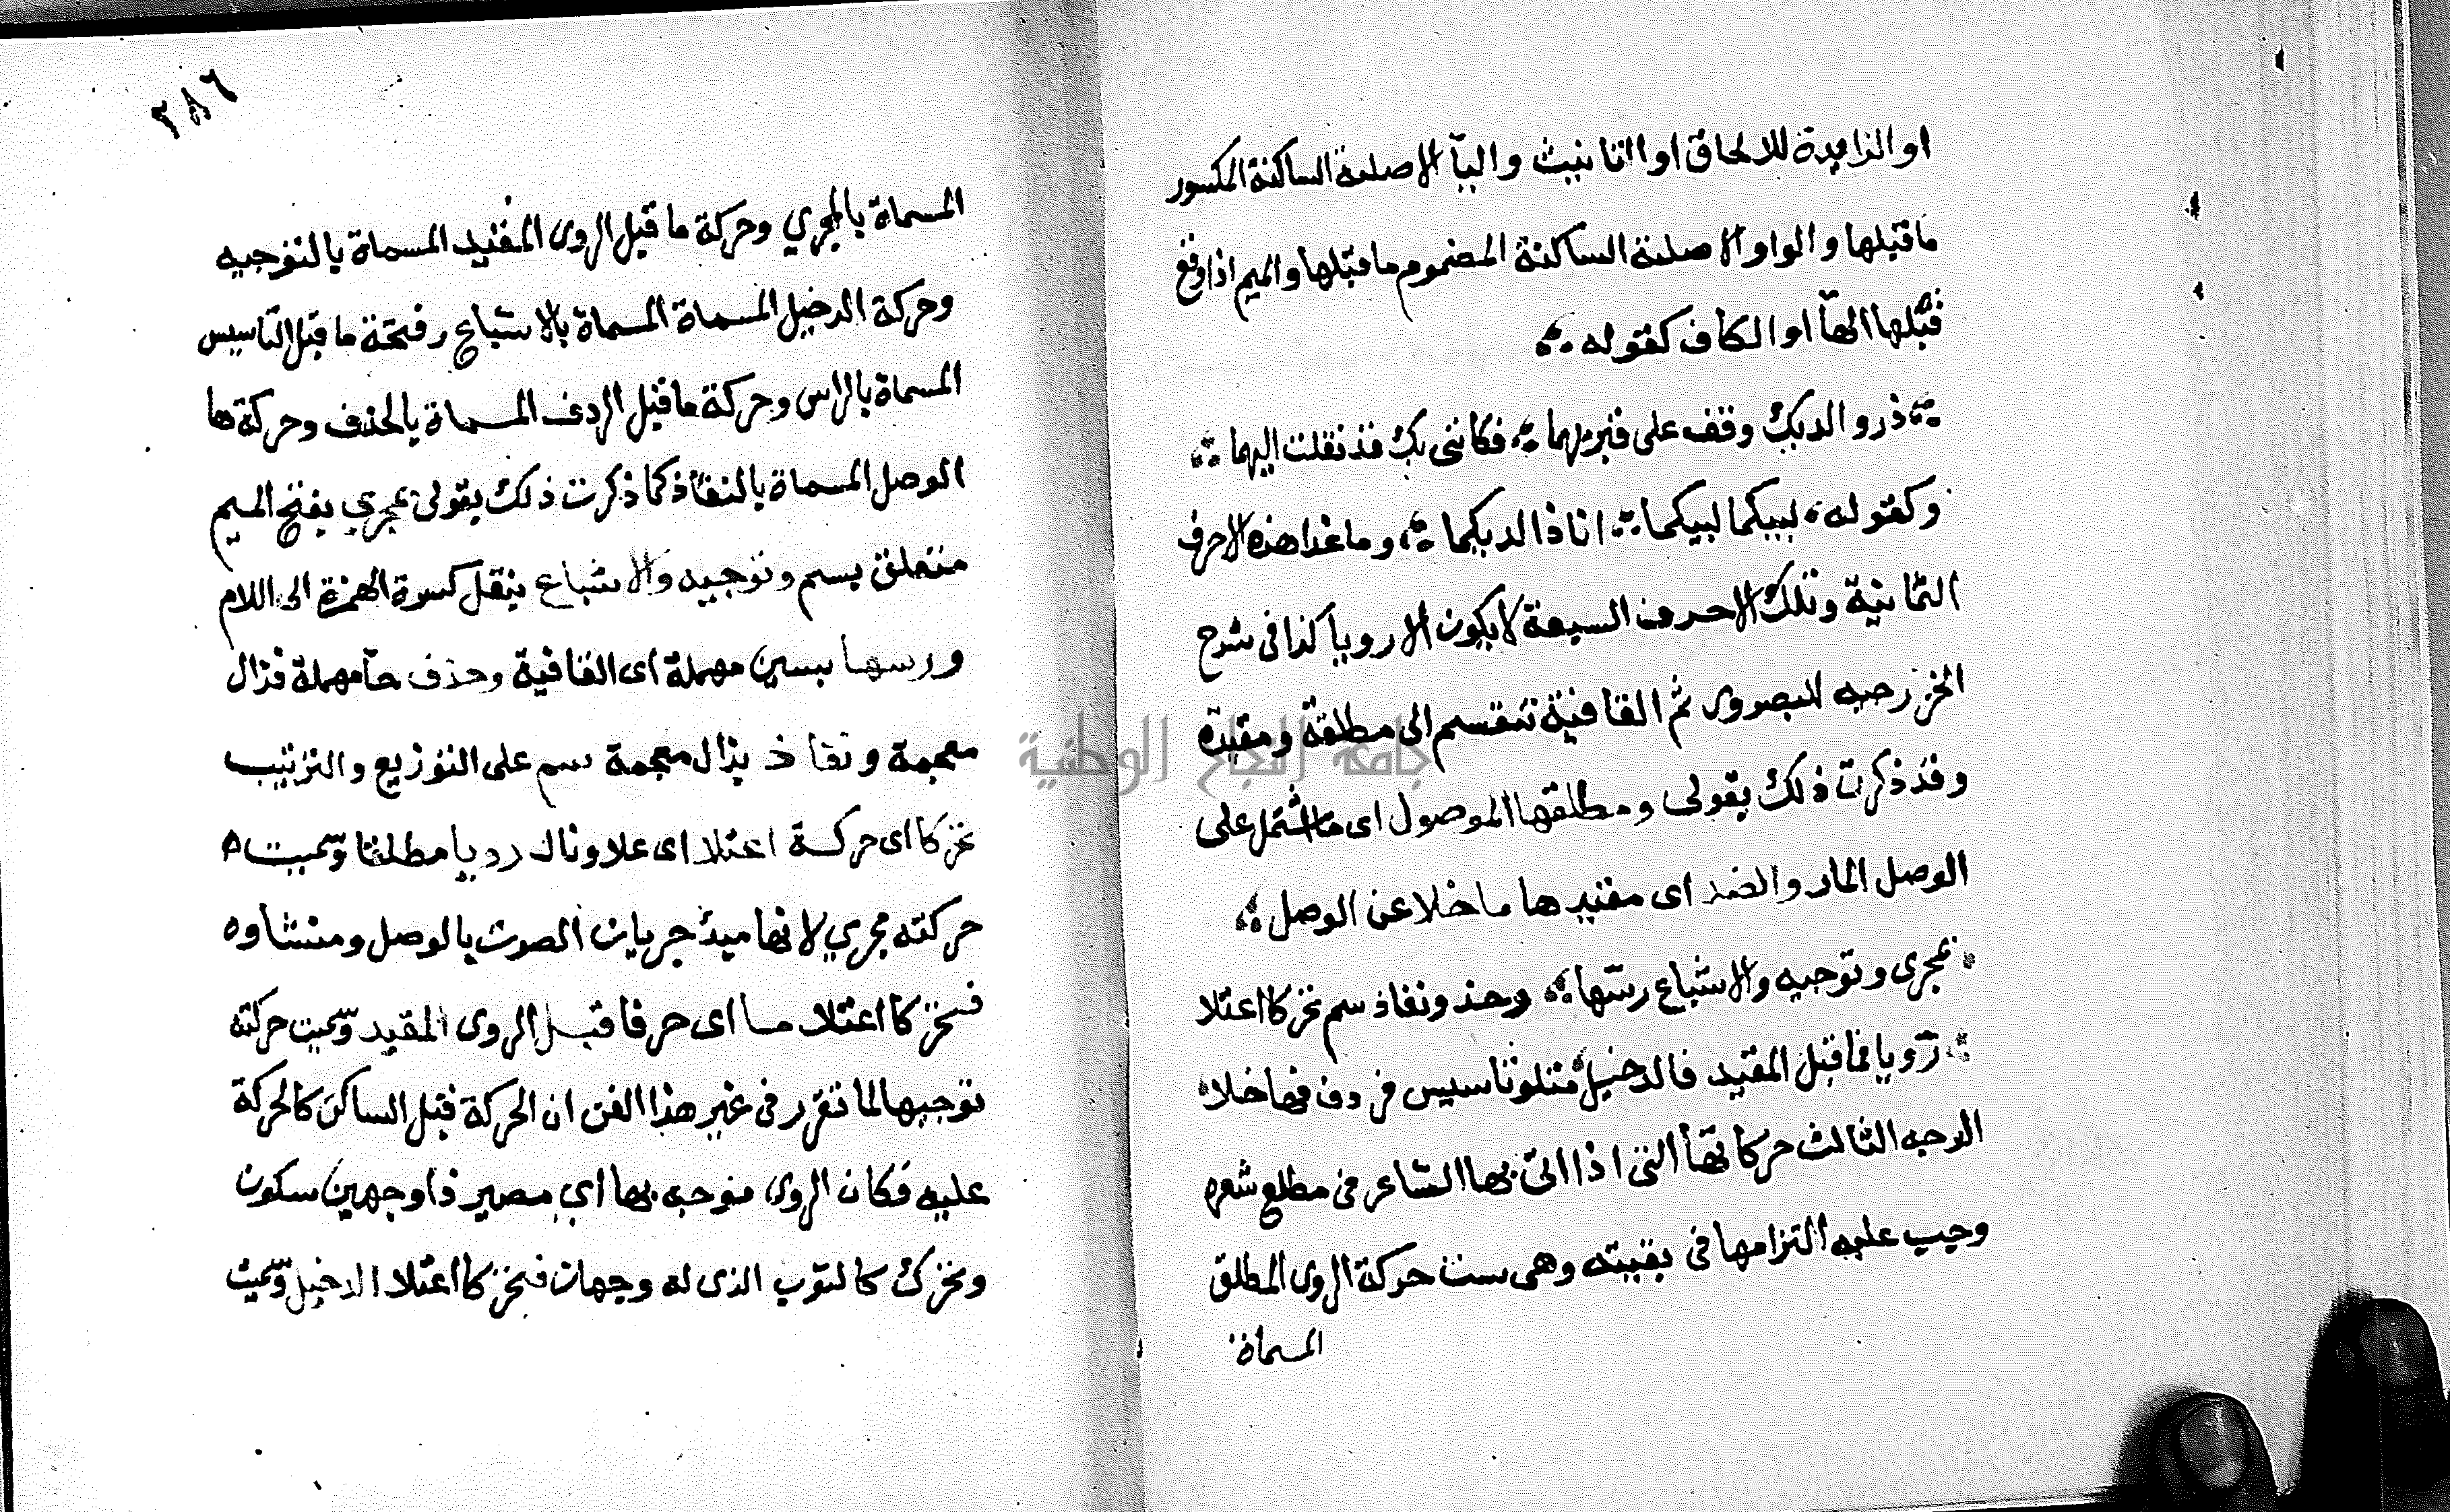 او الزايدة للالحاق او التانيث واليآ الاصلية الساكنة المكسور
ما قبلها والواو الاصلية الساكنة المضموم ما قبلها والميم اذا وقع
قبلها الهآ او الكاف كقوله
ذر والديك وقف على قبريهما فكانني بك قد نقلت اليهما
وكقوله لبيكما لبيكما ها انا ذا لديكما وما عدا هذه الاحرف
الثمانية وتلك الاحرف السبعة لا يكون الا رويا كذا في شرح
الخزرجيه للبصروى ثم القافية تنقسم الى مطلقة ومقيدة
وقد ذكرت ذلك بقولى ومطلقها الموصول اى ما اشتمل على
الوصل المار والضد اى مقيدها ما خلا عن الوصل
بمجرى وتوجيه والاشباع رسّها وحذو ونفاذ سم تحركا اعتلا
رويا فما قبل المقيد فالدخيل متلو تاسيس فردف فها خلا
الوجه الثالث حركاتها التى اذا اتى بها الشاعر فى مطلع شعره
وجب عليه التزامها فى بقيته وهى ست حركة الروى المطلق
المسماة
٢٨٦
المسماة بالمجري وحركة ما قبل الروى المقيد المسماة بالتوجيه
وحركة الدخيل المسماة المسماة بالاشباع وفتحة ما قبل التاسيس
المسماة بالراس وحركة ما قبل الردف المسماة بالحذف وحركة ها
الوصل المسماة بالنفاذ كما ذكرت ذلك بقولى بمجري بفتح الميم
متعلق بسم وتوجيه والاشباع بنقل كسرة الهمزة الى اللام
ورسها بسين مهملة اى القافية وحذف حآ مهملة فذال
معجمة ونفاذ بذال معجمة سم على التوزيع والترتيب
تحركا اى حركة اعتلا اى علا ونال رويا مطلقا وسميت
حركته مجري لانها مبدٔ جريان الصوت بالوصل ومنشاوه
فتحركا اعتلا ما اى حرفا قبل الروى المقيد وسميت حركته
توجيها لما تقرر فى غير هذا الفن ان الحركة قبل الساكن كالحركة
عليه فكان الروى موجه بها اي مصير ذا وجهين سكون
وتحرك كالثوب الذى له وجهان فتحركا اعتلا الدخيل وسميت
جامعة النجاح الوطنية